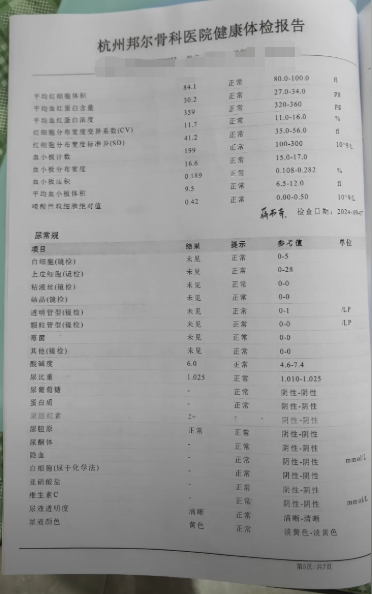 杭州邦尔骨科医院健康体检报告
平均红细胞体积 84.1 正常 80.0-100.0 fl
平均血红蛋白含量 30.2 正常 27.0-34.0 pg
平均血红蛋白浓度 359 正常 320-360 g/L
红细胞分布宽度变异系数(CV) 11.7 正常 11.0-16.0 %
红细胞分布宽度标准差(SD) 41.2 正常 35.0-56.0 fl
血小板计数 199 正常 100-300 10^9/L
血小板分布宽度 16.6 正常 15.0-17.0
血小板压积 0.189 正常 0.108-0.282 %
平均血小板体积 9.5 正常 6.5-12.0 fl
嗜酸性粒细胞绝对值 0.42 正常 0.00-0.50 10^9/L
检查日期: 2024-09-
尿常规
项目 结果 提示 参考值 单位
白细胞(镜检) 未见 正常 0-5
上皮细胞(镜检) 未见 正常 0-28
粘液丝(镜检) 未见 正常 0-0
结晶(镜检) 未见 正常 0-0
透明管型(镜检) 未见 正常 0-1 /LP
颗粒管型(镜检) 未见 正常 0-0 /LP
霉菌 未见 正常 0-0
其他(镜检) 未见 正常 0-0
酸碱度 6.0 正常 4.6-7.4
尿比重 1.025 正常 1.010-1.025
尿葡萄糖 - 正常 阴性-阴性
蛋白质 - 正常 阴性-阴性
尿胆红素 阴性-阴性
尿胆原 正常 正常 阴性-阴性
尿酮体 - 正常 阴性-阴性
隐血 - 正常 阴性-阴性
白细胞(尿十化学法) - 正常 阴性-阴性 mmol/L
亚硝酸盐 - 正常 阴性-阴性
维生素C - 正常 阴性-阴性 mmol/L
尿液透明度 清晰 正常 清晰-清晰
尿液颜色 黄色 正常 淡黄色-淡黄色
第5页/共7页